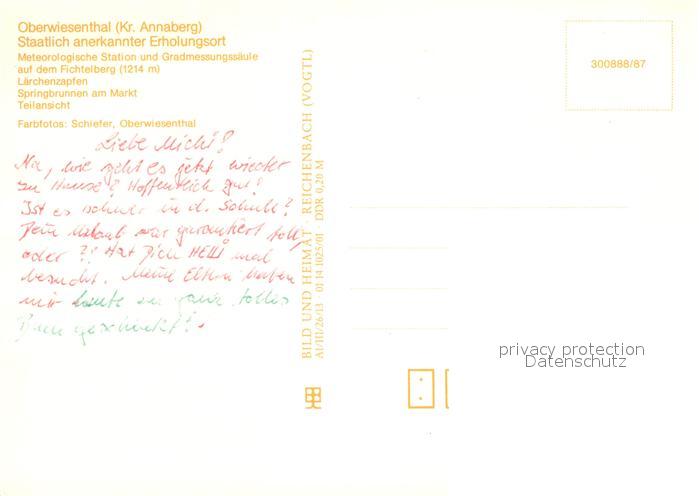 Oberwiesenthal (Kr. Annaberg)
Staatlich anerkannter Erholungsort
Meteorologische Station und Gradmessungssäule
auf dem Fichtelberg (1214 m)
Lärchenzapfen
Springbrunnen am Markt
Teilansicht
Farbfotos: Schiefer, Oberwiesenthal
Liebe Michi!
Na, wie geht es jetzt wieder
zu Hause? Hoffentlich gut!
Ist es schwer in d. Schule?
Dein Urlaub war garantiert toll,
oder?! Hat Dich HELLI mal
besucht. Meine Eltern haben
mir heute ein ganz tolles
geschenkt!
BILD UND HEIMAT · REICHENBACH (VOGTL)
A1/III/26/13 · 01 14 1025/01 DDR 0,20 M
300888/87
privacy protection
Datenschutz